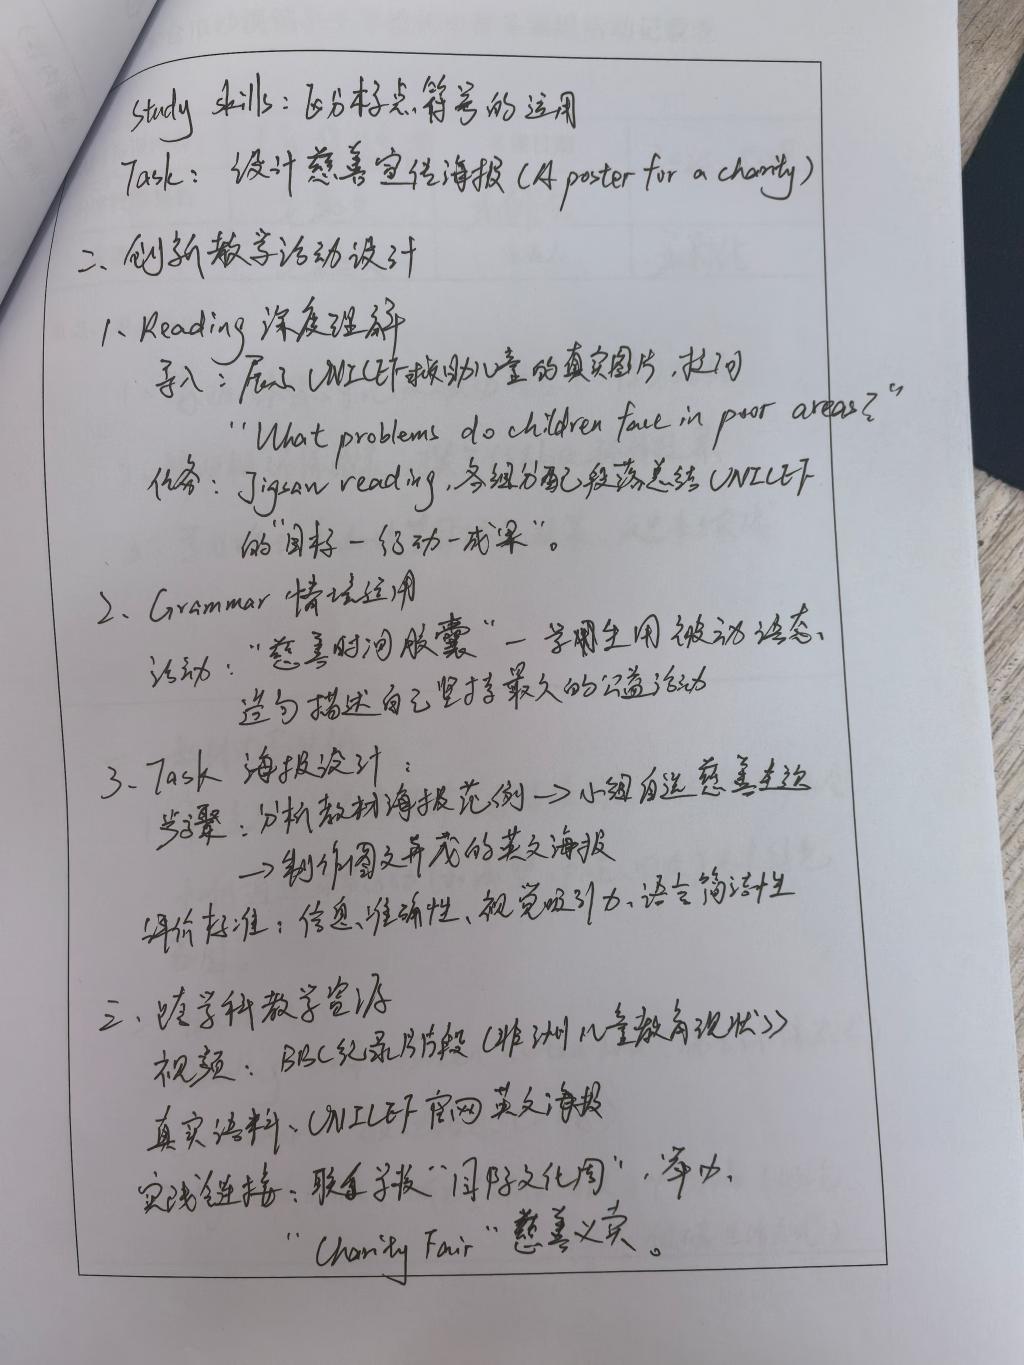 study skills：区分标点符号的运用
Task：设计慈善宣传海报（A poster for a charity）
二、创新教学活动设计
1、Reading 深度理解
导入：展示UNICEF援助儿童的真实图片，提问
“What problems do children face in poor areas?”
任务：Jigsaw reading，各组分配段落总结UNICEF
的“目标—行动—成果”。
2、Grammar 情境运用
活动：“慈善时间胶囊”—学生用被动语态、
造句描述自己坚持最久的公益活动
3、Task 海报设计：
步骤：分析教材海报范例→小组自选慈善主题
→制作图文并茂的英文海报
评价标准：信息准确性、视觉吸引力、语言简洁性
三、跨学科教学资源
视频：BBC纪录片片段《非洲儿童教育现状》
真实语料、UNICEF官网英文海报
实践链接：联合学校“国际文化周”，举办、
“Charity Fair”慈善义卖。